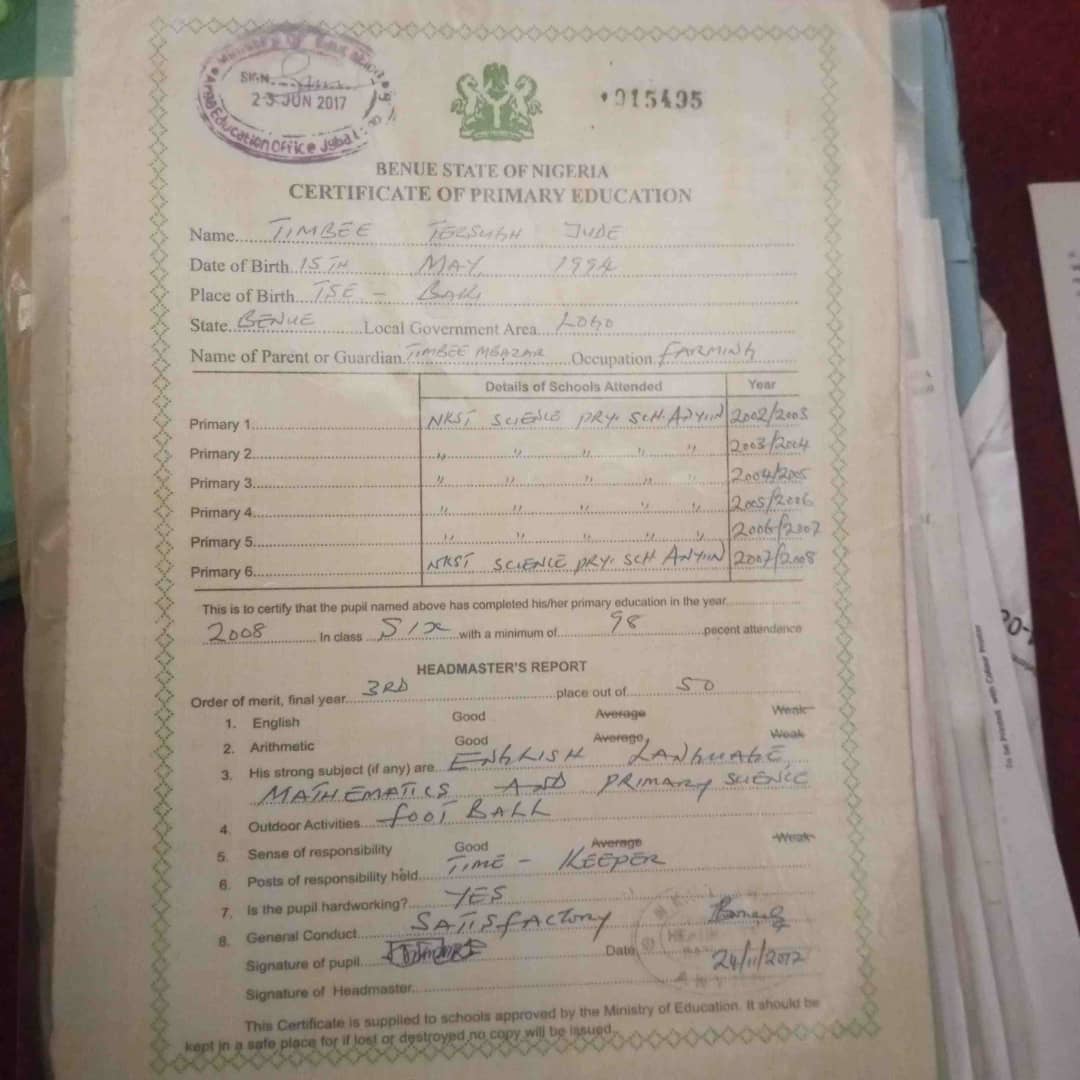 SIGN
23 JUN 2017
Area Education Office Ugba L.G
015495
BENUE STATE OF NIGERIA
CERTIFICATE OF PRIMARY EDUCATION
Name TIMBEE TERSUGH JUDE
Date of Birth 15TH MAY, 1994
Place of Birth TSE - BAKI
State BENUE Local Government Area LOGO
Name of Parent or Guardian TIMBEE MBAZAR Occupation FARMING
Details of Schools Attended Year
Primary 1 NKST SCIENCE PRY. SCH. ANYIIN 2002/2003
Primary 2 ,, ,, ,, ,, ,, 2003/2004
Primary 3 ,, ,, ,, ,, ,, 2004/2005
Primary 4 ,, ,, ,, ,, ,, 2005/2006
Primary 5 ,, ,, ,, ,, ,, 2006/2007
Primary 6 NKST SCIENCE PRY. SCH ANYIIN 2007/2008
This is to certify that the pupil named above has completed his/her primary education in the year
2008 In class SIX with a minimum of 98 pecent attendance
HEADMASTER'S REPORT
Order of merit, final year 3RD place out of 50
1. English Good Average Weak
2. Arithmetic Good Average Weak
3. His strong subject (if any) are ENGLISH LANGUAGE,
MATHEMATICS AND PRIMARY SCIENCE
4. Outdoor Activities FOOT BALL
5. Sense of responsibility Good Average Weak
6. Posts of responsibility held TIME - KEEPER
7. Is the pupil hardworking? YES
8. General Conduct SATISFACTORY
Signature of pupil Date 24/11/2012
Signature of Headmaster
This Certificate is supplied to schools approved by the Ministry of Education. It should be
kept in a safe place for if lost or destroyed no copy will be issued.
To be Printed with Colour Printer